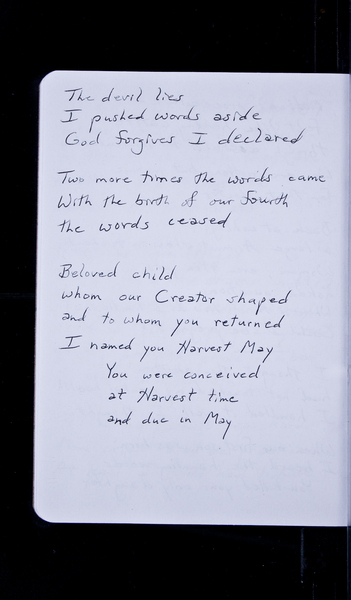 The devil lies
I pushed words aside
God forgives I declared
Two more times the words came
With the birth of our fourth
the words ceased
Beloved child
whom our Creator shaped
and to whom you returned
I named you Harvest May
You were conceived
at Harvest time
and due in May